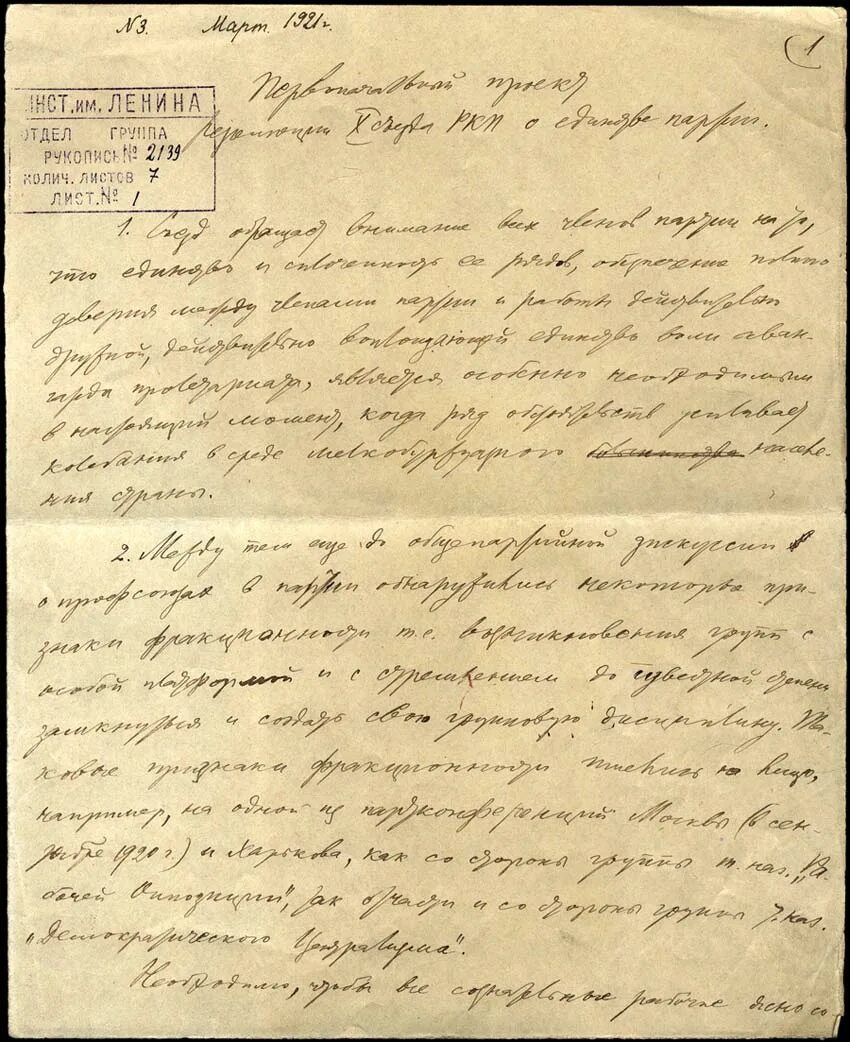 N3. Март 1921 г.
1
Первоначальный проект
резолюции X съезда РКП о единстве партии.
ИНСТ. им. ЛЕНИНА
ОТДЕЛ ГРУППА
РУКОПИСЬ № 2139
КОЛИЧ. ЛИСТОВ 7
ЛИСТ. № 1
1. Съезд обращает внимание всех членов партии на то,
что единство и сплоченность ее рядов, обеспечение полного
доверия между членами партии и работы действительно
дружной, действительно воплощающей единство воли аван-
гарда пролетариата, является особенно необходимым
в настоящий момент, когда ряд обстоятельств усиливает
колебания в среде мелкобуржуазного населе-
ния страны.
2. Между тем еще до общепартийной дискуссии
о профсоюзах в партии обнаружились некоторые при-
знаки фракционности т.е. возникновения групп с
особой платформой и с стремлением до известной степени
замкнуться и создать свою групповую дисциплину. Та-
ковые признаки фракционности имелись на лицо,
например, на одной из партконференций Москвы (в сен-
тябре 1920 г.) и Харькова, как со стороны группы т. наз. „Ра-
бочей Оппозиции", так отчасти и со стороны группы т. наз.
„Демократического Централизма".
Необходимо, чтобы все сознательные рабочие ясно со